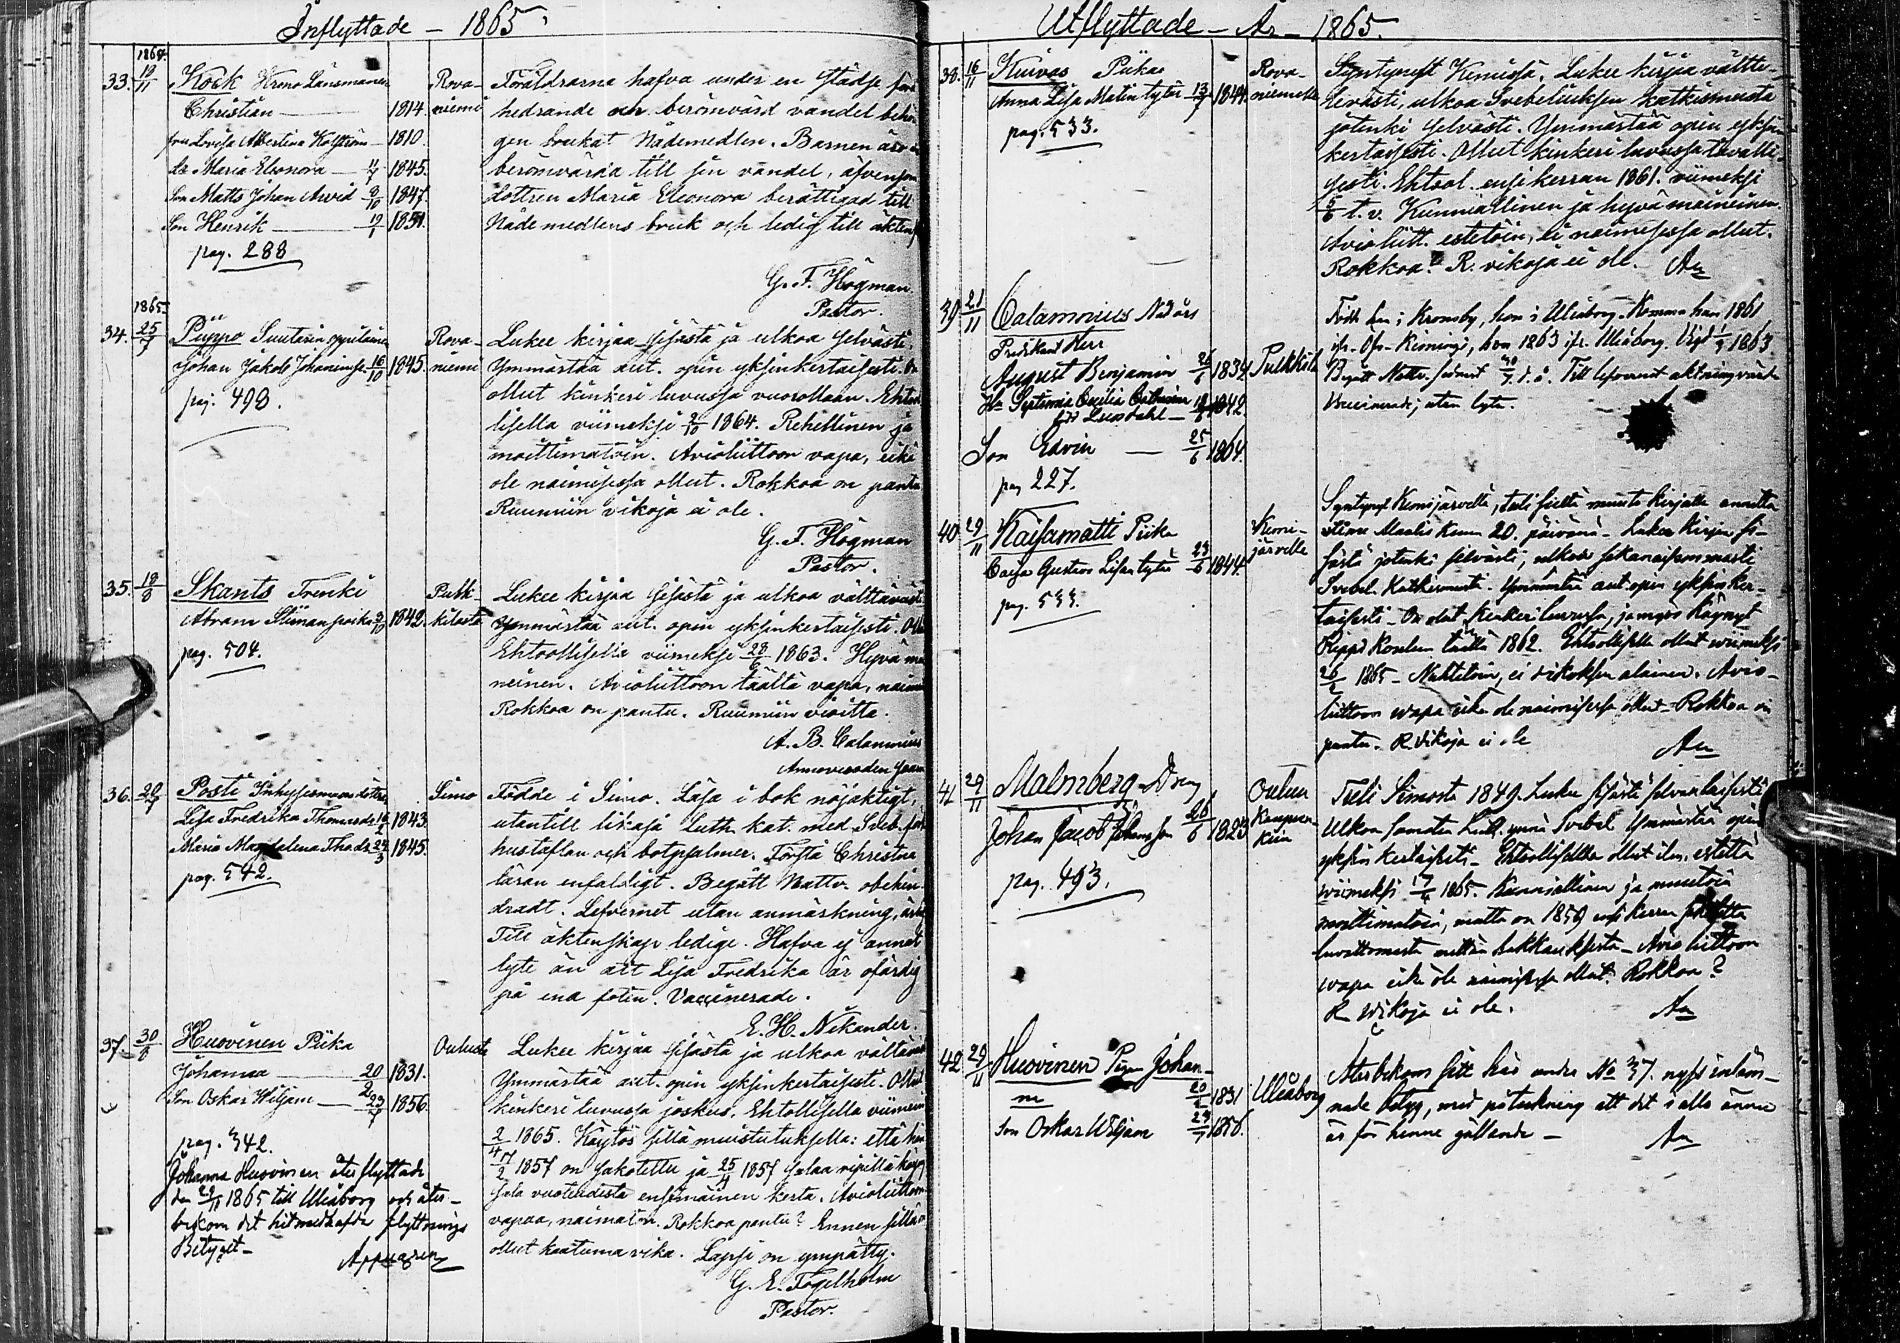 Inflyttade - 1865.
1864.
33. 19/11 Kock Krono Länsmannen
Christian 1814
fru Lovisa Albertina Holström 1810.
dr Maria Eleonora 11/7 1845.
Son Matts Johan Arvid 9/10 1847.
Son Henrik 19/1 1851.
pag. 288
Rova-
niemi
Föräldrarna hafva under en städse
hedrande och berömvärd vandel
gen brukat Nådemedlen. Barnen äro
berömvärda till sin vandel, äfvensom
dottren Maria Eleonora berättigad till
Nådemedlens bruk och ledig till äktensk
G. F. Högman
Pastor.
1865
34. 25/7 Piippo Suutarin oppilainen
Johan Jakob Johaninp. 16/10 1845.
pag. 498.
Rova-
niemi
Lukee kirjaa sisästä ja ulkoa selvästi
Ymmärtää aut. opin yksinkertaisesti.
ollut kinkeri luvussa vuorollaan.
lisella viimeksi 2/10 1864. Rehellinen ja
moittimatoin. Avioliittoon vapa, eikä
ole naimisissa ollut. Rokkoa on pantu
Ruumiin vikoja ei ole.
G. F. Högman
Pastor.
35. 19/8 Skants Trenki
Abram Stiimanpoika 3/10 1842.
pag. 504.
Pulk-
kilasta
Lukee kirjaa sisästä ja ulkoa välttävästi
Ymmärtää aut. opin yksinkertaisesti.
Ehtoollisella viimeksi 28/6 1863. Hyvä mai
neinen. Avioliittoon täältä vapa,
Rokkoa on pantu. Ruumiin viaitta.
A. B. Calamnius
Armovuoden
36. 20/7 Posti Inhysesmans döttrar
Lisa Fredrika Thomasdr 16/2 1843.
Maria Magdalena Thsdr 24/3 1845.
pag. 542.
Simo
Födde i Simo. Läsa i bok nöjaktigt,
utantill likaså Luth. kat. med Sveb.
hustaflan och botpsalmer. Förstå Christna
läran enfaldigt. Begått Nattv. obehin-
dradt. Lefvernet utan anmärkning,
Till äktenskap ledige. Hafva ej annat
lyte än att Lisa Fredrika är ofärdig
på ena foten. Vaccinerade.
E. H. Nikander.
37. 30/8 Huovinen Piika
Johanna 20/2 1831.
Son Oskar Wiljam 23/7 1856.
pag. 342.
Johanna Huovinen återflyttade
den 29/11 1865 till Uleåborg och åter-
bekom det hitmedhafde flyttnings
Betyget-
Appelgren
Oulusta
Lukee kirjaa sisästä ja ulkoa välttäväst
Ymmärtää aut. opin yksinkertaisesti. Ollut
kinkeri luvussa joskus. Ehtollisella viimeksi
2/4 1865. Käytös sillä muistutuksella: että hän
17/2 1857 on sakotettu ja 25/4 1857 salaa ripillä käynyt
sala vuoteudesta ensimäinen kerta. Avioliittoon
vapaa, naimaton. Rokkoa pantu? Ennen sillä
ollut kaatuma vika. Lapsi on ympätty.
G. E. Fogelholm
Pastor.
Utflyttade - År - 1865.
38. 16/11 Kuivas Piika
Anna Lisa Matin tytär 13/7 1844
pag. 533.
Rova-
niemelle
Syntynyt Kemissä. Lukee kirjaa vältte-
levästi, ulkoa Svebeliuksen katkismusta
jotenki selvästi. Ymmärtää opin yksin-
kertaisesti. Ollut kinkeri luvussa tavalli-
sesti. Ehtool. ensi kerran 1861. viimeksi
5/6 t.v. Kunniallinen ja hyvämaineinen.
Avioliitt. estetöin, ei naimisissa ollut.
Rokkoa? R. vikoja ei ole. An
39 21/11 Calamnius Nådårs
Predikant Herr
August Benjamin 26/6 1834
Son Edvin 25/6 1864
pag 227.
Pulkkila
Född han i Kronoby, hon i Uleåborg. Komne han 1861
ifr. Ofv. Kiiminge, hon 1863 ifr. Uleåborg. Vigd 1863
Begått Nattv. senast t. å. Till lefvernet aktningsvärde
Vaccinerade, utan lyte.
40 29/11 Kaisamatti Piika
Caisa Gustava Lisan tytär 23/6 1844
pag. 533.
Kemi-
järville
Syntynyt Kemijärvellä, tuli sieltä muuto kirjalla
Maalis kuun 20. päivänä. Lukee kirjaa si-
sästä jotenki selvästi, ulkoa
Svebel. Katkismusti. Ymmärtää aut. opin yksinker-
taisesti. On olut kinkeri luvussa, ja myös käynyt
Rippi koulun täällä 1862. Ehtollisella ollut wiimeksi
1865 - Nuhtetoin, ei rikoksen alainen. Avio-
liittoon wapa eikä ole naimisissa ollut - Rokkoa on
pantu. R. vikoja ei ole
An
41 29/11 Malmberg Dreng
Johan Jacob Johansson 26/6 1823
pag. 493.
Oulun
Kaupun-
kiin
Tuli Simosta 1849. Lukee sisästä selvänlaisesti
Ulkoa samaten Luth. ynnä Svebel. Ymmärtää opin
yksinkertaisesti - Ehtollisella ollut ilm. estettä
wiimeksi 1865. Kunniallinen ja muutoin
moittimatoin, mutta on 1859 ensi kerran
wapa eikä ole naimisissa ollut. Rokkoa?
R wikoja ei ole.
An
42 29/11 Huovinen Pigan Johan-
na 20/2 1831
son Oskar Wiljam 23/7 1856.
Uleåborg
Återbekom sitt här under No 37. nyss inläm-
nade betyg, med påteckning att det i allo ännu
är för henne gällande -
An